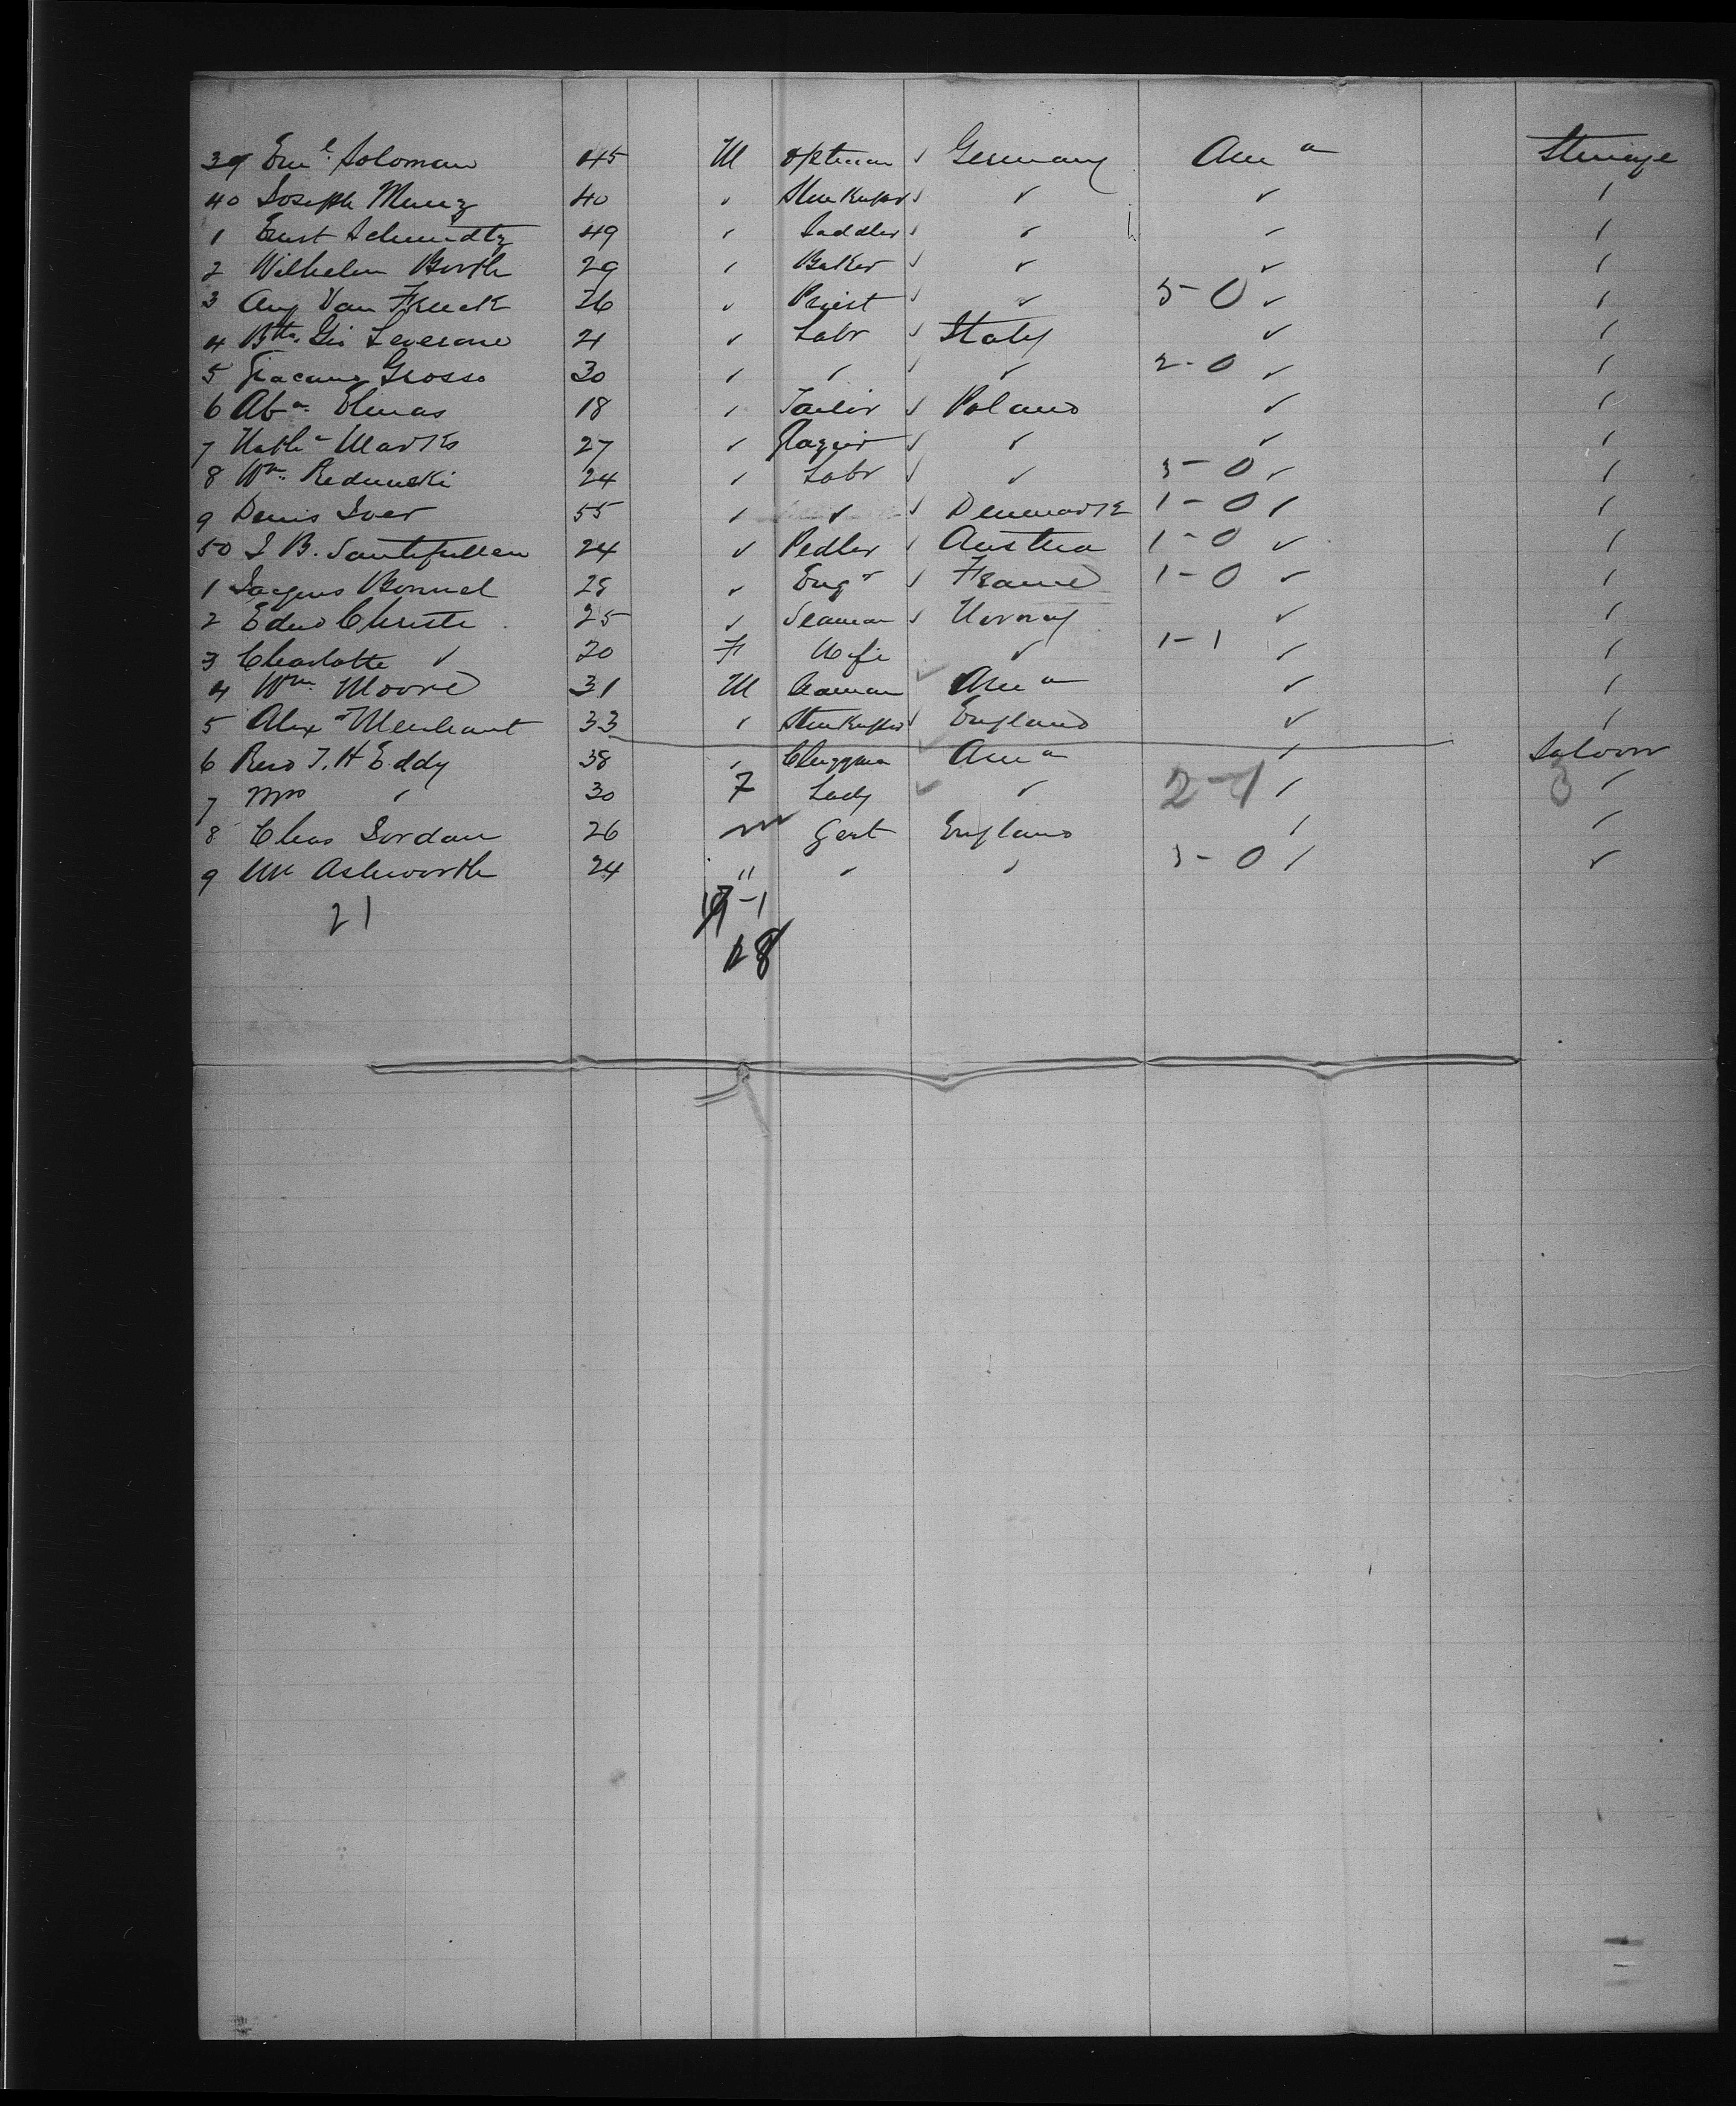 39 Em^l. Soloman 45 M Optician ✓ Germany Am^a Steerage
40 Joseph Munz 40 ✓ Storekeeper ✓ ✓ ✓ ✓
1 Ernst Schmidtz 49 ✓ Saddler ✓ ✓ ✓ ✓
2 Wilhelm Borth 29 ✓ Baker ✓ ✓ ✓ ✓
3 Aug Van 26 ✓ Priest ✓ ✓ 5-0 ✓ ✓
4 Btta. Gio Leverone 21 ✓ Labr ✓ Italy ✓ ✓
5 Giacamo Grosso 30 ✓ ✓ ✓ ✓ 2-0 ✓ ✓
6 Ab^m. Elmas 18 ✓ Tailor ✓ Poland ✓ ✓
7 Nath^n Marks 27 ✓ Glazier ✓ ✓ ✓ ✓
8 Wm. Redunski 24 ✓ Labr ✓ ✓ 3-0 ✓ ✓
9 Denis Iver 55 ✓ ✓ ✓ Denmark 1-0 ✓ ✓
50 J B. Santifullen 24 ✓ Pedler ✓ Austria 1-0 ✓ ✓
1 Jacques Bonnel 28 ✓ Eng^r ✓ France 1-0 ✓ ✓
2 Edwd Christe 25 ✓ Seaman ✓ Norway ✓ ✓
3 Charlotte ✓ 20 F Wife ✓ 1-1 ✓ ✓
4 Wm. Moore 31 M Seaman ✓ Am^a ✓ ✓
5 Alex^r Merchant 33 ✓ Storekeeper ✓ England ✓ ✓
6 Revd J. H Eddy 38 ✓ Clergyman ✓ Am^a ✓ Saloon
7 Mrs ✓ 30 F Lady ✓ ✓ 2-1 ✓ 3 ✓
8 Chas Jordan 26 m Gent England ✓ ✓
9 Mr Ashworth 24 " ✓ ✓ 3-0 ✓ ✓
21 19-1
18